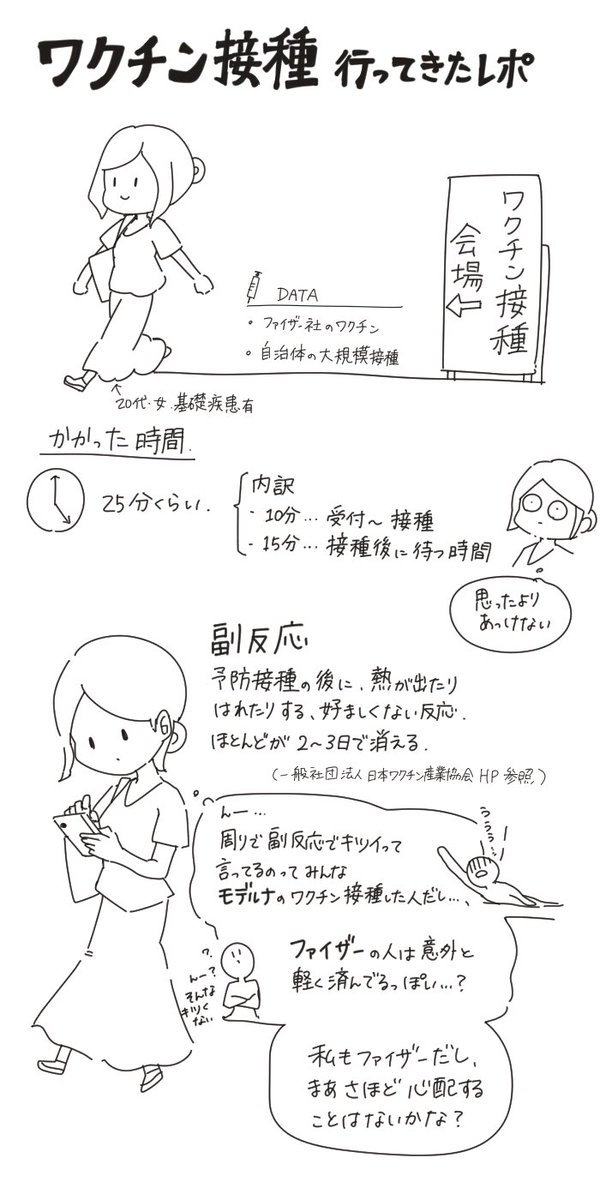 ワクチン接種 行ってきたレポ
ワクチン接種
会場
←
DATA
・ファイザー社のワクチン
・自治体の大規模接種
↑
20代・女.基礎疾患有
かかった時間.
25分くらい.
内訳
・10分…受付〜接種
・15分…接種後に待つ時間
思ったより
あっけない
副反応
予防接種の後に、熱が出たり
はれたりする、好ましくない反応.
ほとんどが2〜3日で消える.
(一般社団法人 日本ワクチン産業協会 HP 参照)
んー…
周りで副反応でキツイって
言ってるのってみんな
モデルナのワクチン接種した人だし…、
ううう…
ファイザーの人は意外と
軽く済んでるっぽい…?
?
んー?
そんな
キツく
ない
私もファイザーだし、
まあさほど心配する
ことはないかな?